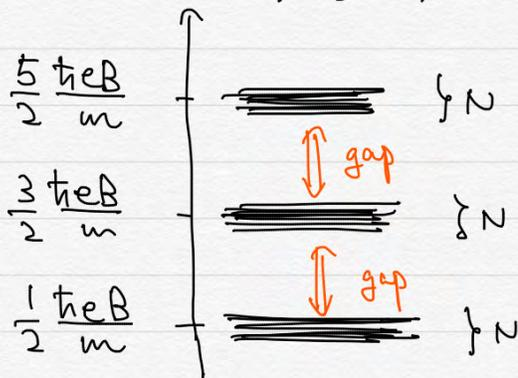 5/2 ħeB/m } N
gap
3/2 ħeB/m } N
gap
1/2 ħeB/m } N